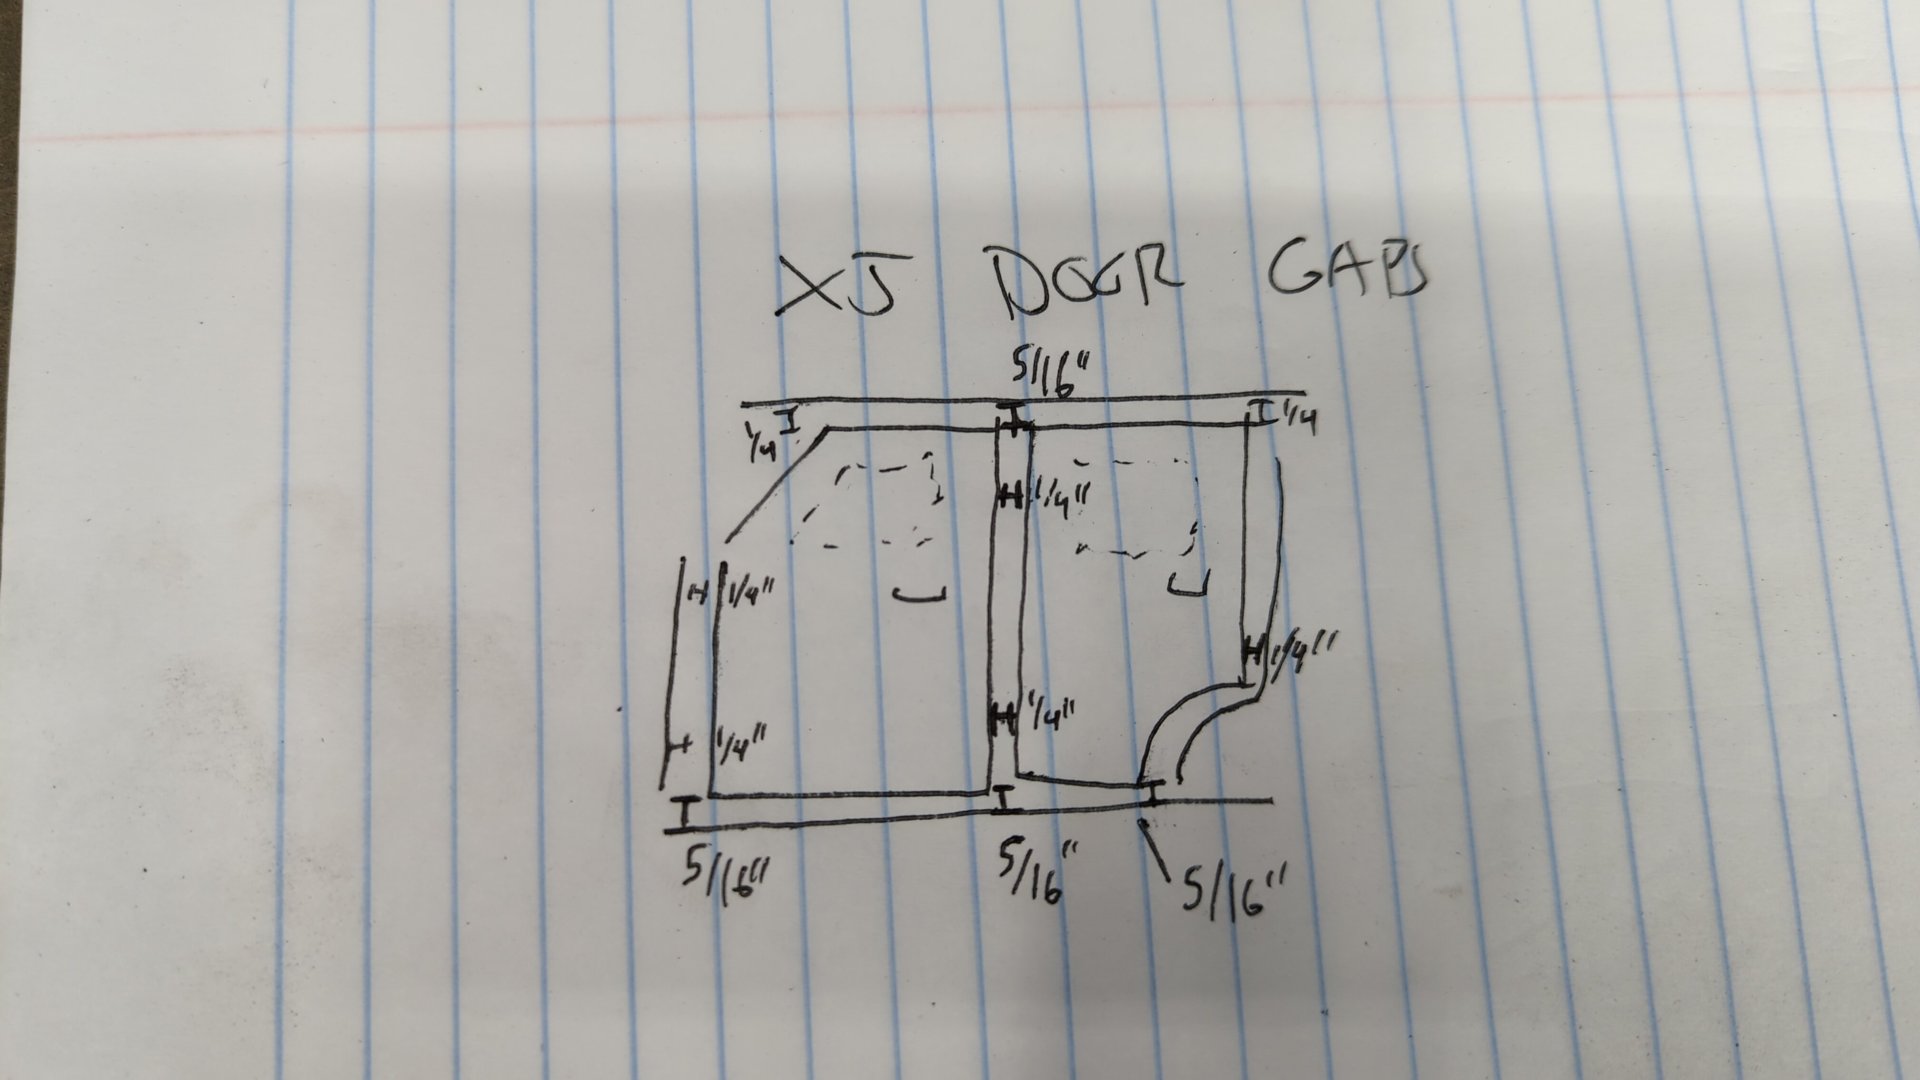 XJ DOOR GAPS
5/16"
1/4
1/4
1/4"
1/4"
1/4"
1/4"
1/4"
5/16"
5/16"
5/16"